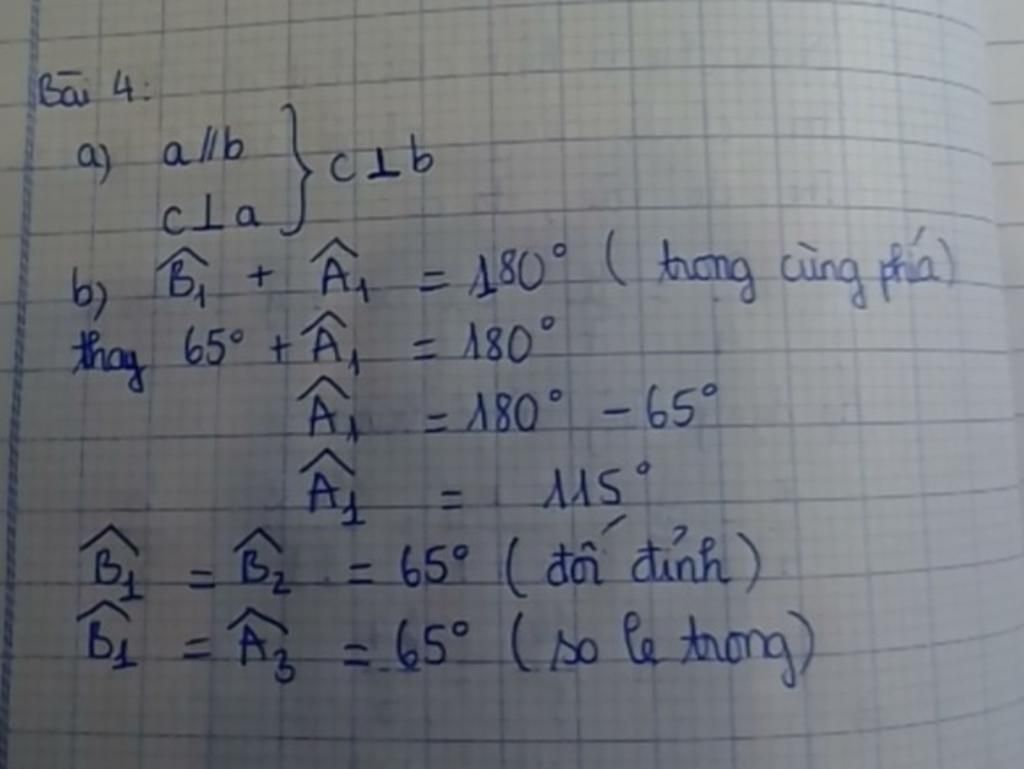 Bài 4:
a) a//b } c⊥b
c⊥a
b) B̂₁ + Â₁ = 180° ( trong cùng phía)
thay 65° + Â₁ = 180°
Â₁ = 180° - 65°
Â₁ = 115°
B̂₁ = B̂₂ = 65° ( đối đỉnh)
B̂₁ = Â₃ = 65° ( so le trong)